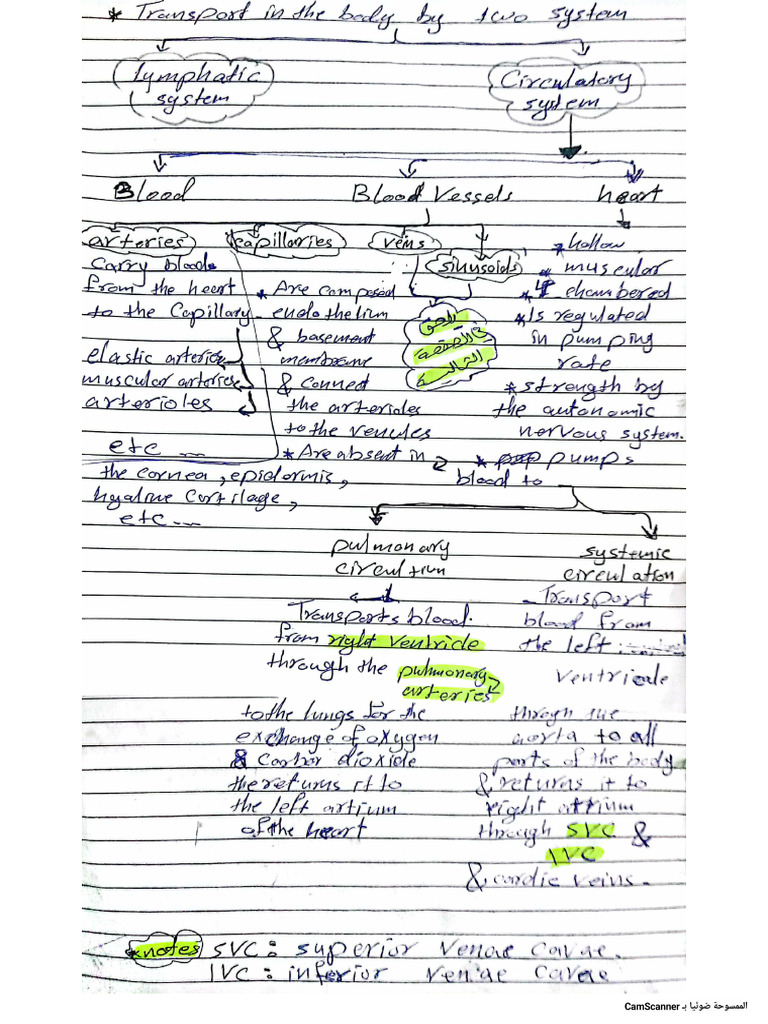 * Transport in the body by two system
Lymphatic
system
Circulatory
system
Blood
Blood Vessels
heart
arteries
carry blood
from the heart
to the Capillary
elastic arteries
muscular arteries
arterioles
etc ...
capillaries
* Are composed
endothelium
& basement
membrane
& connect
the arterioles
to the venules
* Are absent in
the cornea, epidermis,
hyaline cartilage,
etc ...
veins
sinusoids
في الصفحة
التالية
* hollow
* muscular
* 4 chambered
* Is regulated
in pumping
rate
* strength by
the autonomic
nervous system.
* pumps
blood to
pulmonary
circultion
Transports blood.
from right Ventricle
through the pulmonary
arteries
to the lungs for the
exchange of oxygen
& carbor dioxide
the returns it to
the left artium
of the heart
systemic
circulation
_ Transport
blood from
the left
ventricale
through the
aorta to all
parts of the body
& returns it to
right atrium
through SVC &
IVC
& cardic veins.
*notes SVC: superior Venae Cavae.
IVC: inferior Venae Cavae
الممسوحة ضوئيا بـ CamScanner